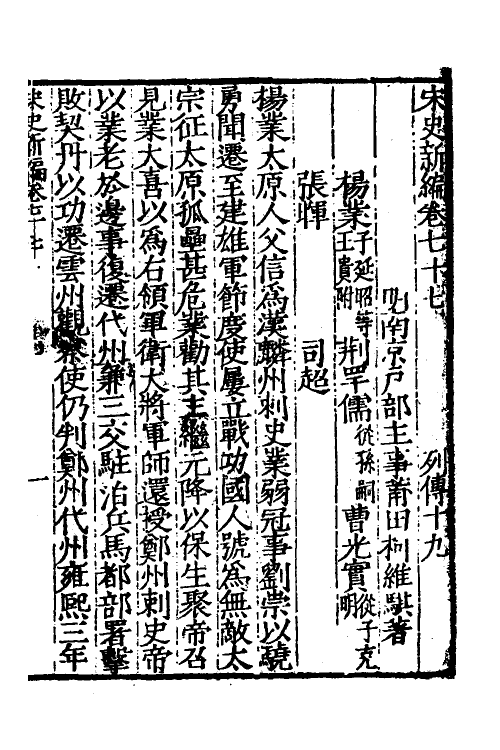 宋史新編卷七十七　列傳十九
明南京戶部主事莆田柯維騏著
楊業子延昭等王貴附　荆罕儒從孫嗣　曹光實從子克明
張暉　司超
楊業太原人父信為漢麟州刺史業弱冠事劉崇以驍
勇聞遷至建雄軍節度使屢立戰功國人號為無敵太
宗征太原孤壘甚危業勸其主繼元降以保生聚帝召
見業大喜以為右領軍衛大將軍師還授鄭州刺史帝
以業老於邊事復遷代州兼三交駐泊兵馬都部署擊
敗契丹以功遷雲州觀察使仍判鄭州代州雍熙三年
宋史新編卷七十七
一